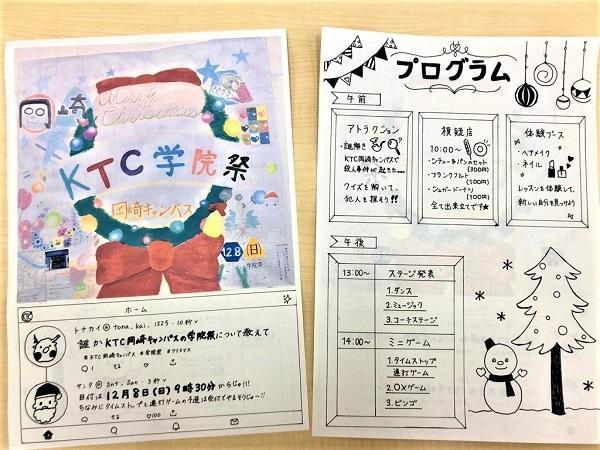 Merry
Christmas
KTC学院祭
岡崎キャンパス
12.8(日)
学院祭
ホーム
トナカイ@tona_kai_1225・10秒
誰かKTC岡崎キャンパスの学院祭について教えて
#KTC岡崎キャンパス #学院祭 #クリスマス
サンタ@snt_san・3秒
日付は12月8日(日)9時30分からじゃ!!!
ちなみにタイムストップと連打ゲームの予選は受付でやるぞうじゃー!!
プログラム
午前
アトラクション
・謎解き
KTC岡崎キャンパスで
殺人事件が起きた…
クイズを解いて、
犯人を探そう!!
模擬店
10:00〜
・シチュー&パンのセット
(300円)
・フランクフルト
(100円)
・シュガードーナツ
(100円)
全て出来立てです★
体験ブース
・ヘアメイク
・ネイル
レッスンを体験して、
新しい自分を見つけよう
午後
13:00〜 ステージ発表
1.ダンス
2.ミュージック
3.コーラスステージ
14:00〜 ミニゲーム
1.タイムストップ
連打ゲーム
2.○×ゲーム
3.ビンゴ